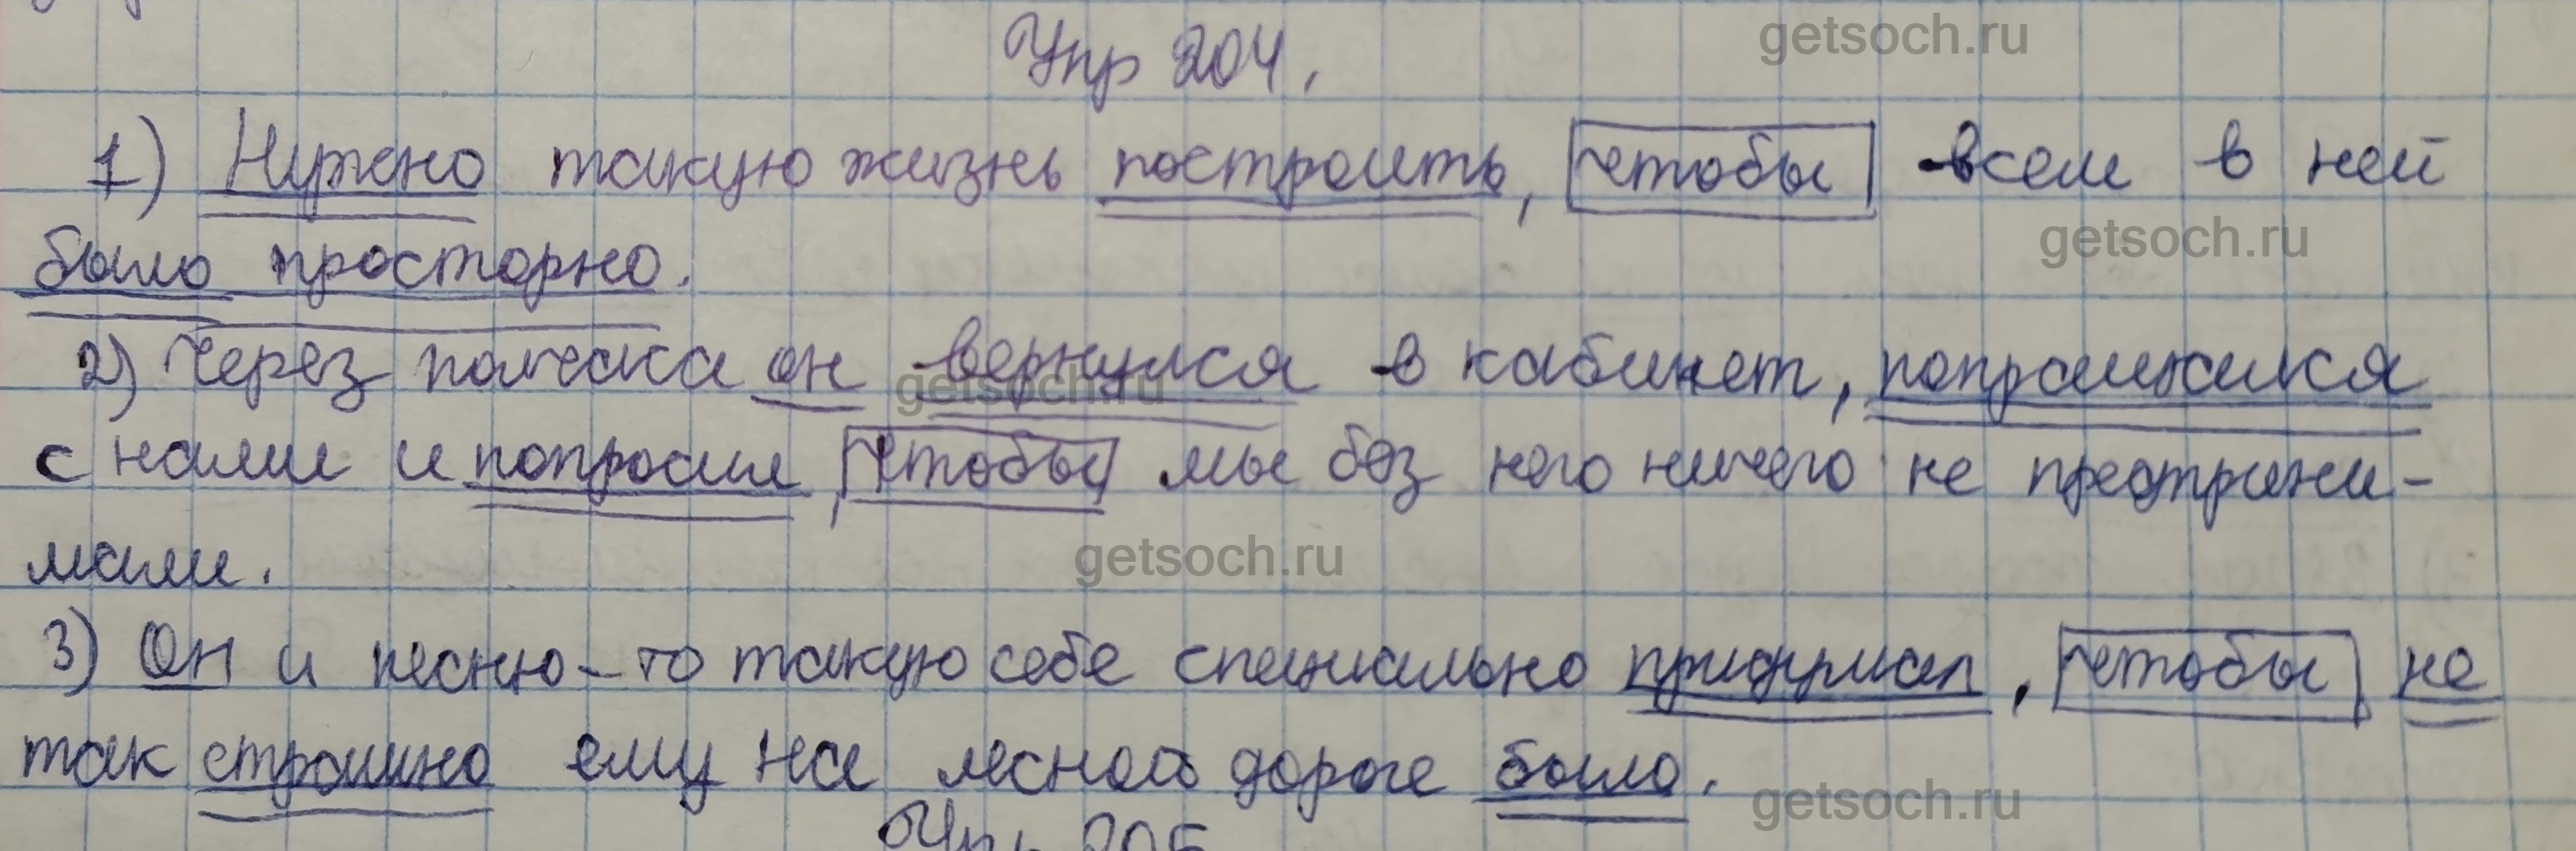 Упр 204.
1) Нужно такую жизнь построить, чтобы всем в ней
было просторно.
2) Через полчаса он вернулся в кабинет, попрощался
с нами и попросил, чтобы мы без него ничего не предприни-
мали.
3) Он и песню-то такую себе специально придумал, чтобы не
так страшно ему на лесной дороге было.
Упр 205
getsoch.ru
getsoch.ru
getsoch.ru
getsoch.ru
getsoch.ru